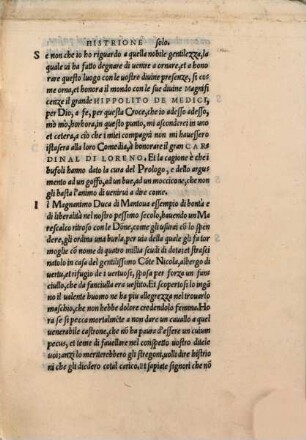 HISTRIONE solo.
Se non che io ho riguardo a quella nobile gentilezza, la
quale ui ha fatto degnare di uenire a ornare, et a hono
rare questo luogo con le uostre diuine presenze, si co
me orna, et honora il mondo con le sue diuine Magnifi
cenze il grande HIPPOLITO DE MEDICI,
per Dio, a fe, per questa Croce, che io adesso adesso,
mò mò, horhora, in questo punto, mi ascondrei in uno
et cetera, a ciò che i miei compagni non mi hauessero
isto sera alla loro Comedia, a honorare il gran CAR
DINAL DI LORENO. Et la cagione è che i
bufoli hanno dato la cura del Prologo, e dello argu
mento ad un goffo, ad un bue, ad un moccicone, che non
gli basta l'animo di uenirui a dire come.
Il Magnanimo Duca di Mantoua essempio di bontà e
di liberalità nel nostro pessimo secolo, hauendo un Ma
rescalco ritroso con le Dõne, come gli usurai cõ lo spen
dere, gli ordina una burla per uia della quale gli fa tor
moglie cõ nome di quatro milia scudi di dota, et strasci
natolo in casa del gentilissimo Cõte Nicola, albergo di
uertu, et rifugio de i uertuosi, sposa per forza un fan
ciullo, che da fanciulla era uestito. Et scoperto si lo ingã
no il ualente huomo ne ha piu allegrezza nel trouarlo
maschio, che non hebbe dolore credendolo femina. Ho
ra se si pecca mortalmẽte a non dare un cauallo a quel
uenerabile castrone, che nõ ha paura d'essere un cuium
pecus, et teme di fauellare nel conspetto uostro ditelo
uoi; anzi lo meriterebbero gli stregoni, uolli dire histrio
ni che gli diedero cotal carico. Et sapiate signori che nõ